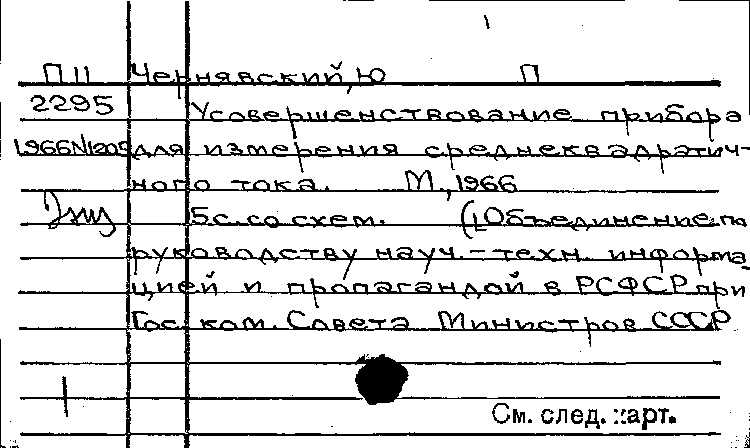 П11 Чернявский, Ю П
2295 Усовершенствование прибора
1966N1205 для измерения среднеквадратич-
ного тока. М., 1966
Экз 5с. со схем. (Объединение по
руководству науч.-техн. информа-
цией и пропагандой в РСФСР при
Гос. ком. Совета Министров СССР
См. след. карт.